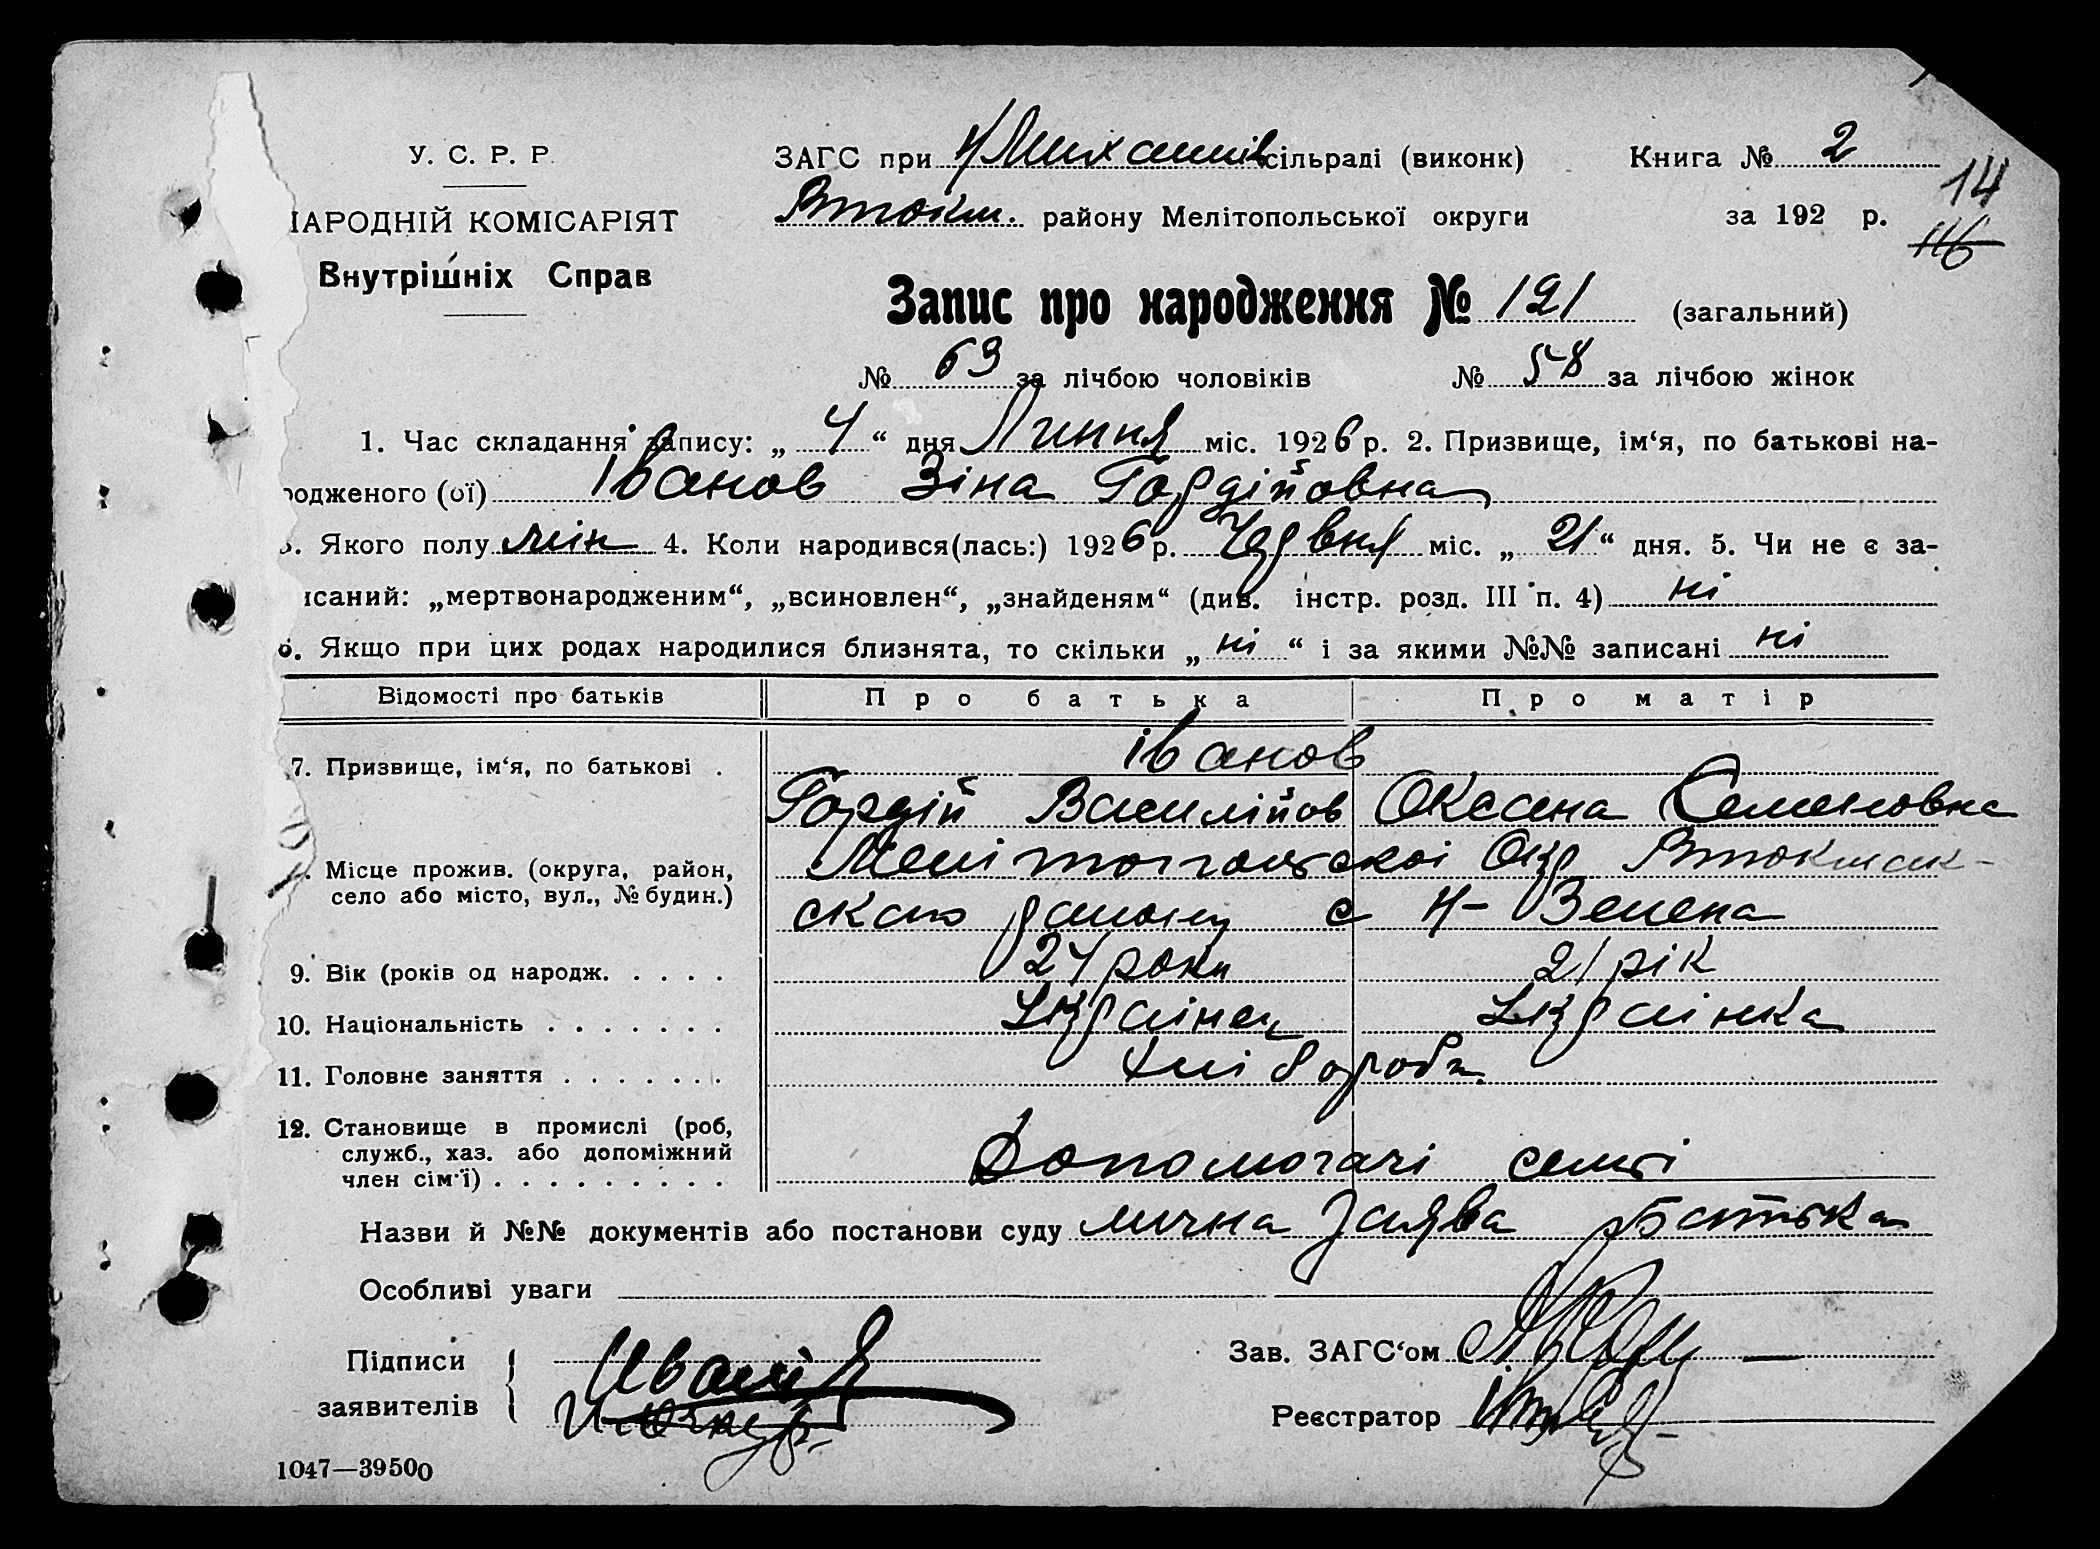 У. С. Р. Р.
НАРОДНІЙ КОМІСАРІЯТ
Внутрішніх Справ
ЗАГС при Н Михайлів сільраді (виконк) Книга № 2
Втокм. району Мелітопольської округи за 192 р.
14
116
Запис про народження № 121 (загальний)
№ 63 за лічбою чоловіків № 58 за лічбою жінок
1. Час складання запису: „ 4 “ дня Липня міс. 1926 р. 2. Призвище, ім‘я, по батькові на-
родженого (ої) Іванов Зіна Гордійовна
3. Якого полу жін 4. Коли народився(лась:) 1926 р. Червня міс. „ 21 “ дня. 5. Чи не є за-
исаний: „мертвонародженим“, „всиновлен“, „знайденям“ (див. інстр. розд. III п. 4) ні
6. Якщо при цих родах народилися близнята, то скільки „ ні “ і за якими №№ записані ні
Відомості про батьків Про батька Про матір
7. Призвище, ім‘я, по батькові . Іванов
Гордій Василійов Оксана Семеновна
Місце прожив. (округа, район, Мелітопольскої Окр Втокмак-
село або місто, вул., № будин.) ског району с Н- Зелена
9. Вік (років од народж. . . . . 24 роки 21 рік
10. Національність . . . . . . . Українец Українка
11. Головне заняття . . . . . . . Хлібороби
12. Становище в промислі (роб,
служб., хаз. або допоміжний
член сім‘ї) . . . . . . . . . Допомогачі семьі
Назви й №№ документів або постанови суду лична заява батька
Особливі уваги
Підписи
заявителів
Зав. ЗАГС‘ом
Реєстратор
1047—39500